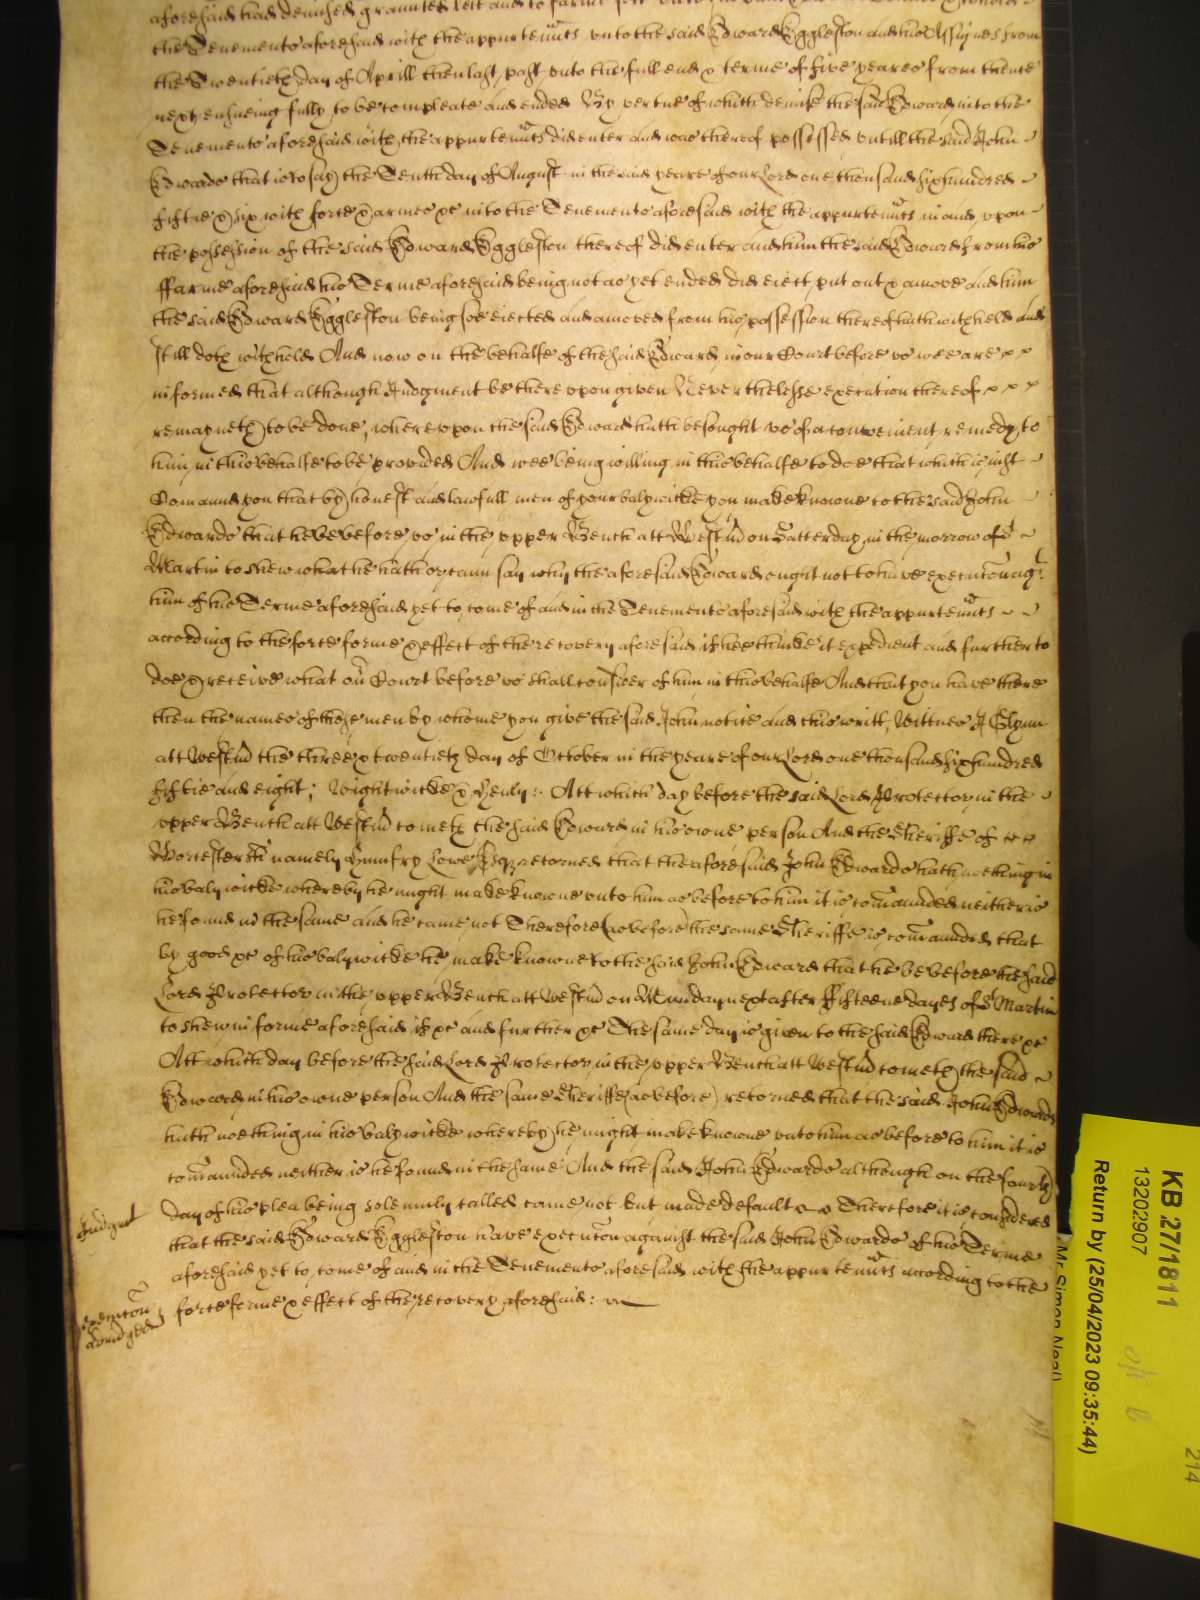 aforesaid had demised graunted lett and to farme sett unto
the Tenements aforesaid with the appurtenñts unto the said Edward Eggleston and his Assignes from
the Twentieth day of Aprill then last past unto the full end & terme of five yeares from thence
next ensueing fully to be compleate and ended By vertue of which demise the said Edward into the
Tenements aforesaid with the appurtenñts did enter and was thereof possessed untill the said John
Edwards that is to say the Tenth day of August in the said yeare of our Lord one thousand six hundred
fiftie & six with force & armes &c into the Tenements aforesaid with the appurtenñts in and upon
the possession of the said Edward Eggleston thereof did enter and him the said Edward from his
ffarme aforesaid his Terme aforesaid being not as yet ended did eiect put out & amove and him
the said Edward Eggleston being soe eiected and amoved from his possession thereof hath withheld and
still doth withhold And now on the behalfe of the said Edward in our Court before us wee are
informed that although Judgment be thereupon given Neverthelesse execution thereof
remayneth to be done, whereupon the said Edward hath besought us of a convenient remedy to
him in this behalfe to be provided And wee being willing in this behalfe to doe that which is just
Comaund you that by honest and lawfull men of your balywicke you make knowne to the said John
Edwards that he be before us in the upper Bench att Westm̃ on Satterday in the morrow of St
Martin to shew what he hath or can say why the aforesaid Edward ought not to have execution agt
him of his Terme aforesaid yet to come of and in the Tenements aforesaid with the appurtenñts
according to the force forme & effect of the recovery aforesaid if hee thinke it expedient and further to
doe & receive what our Court before us shall consider of him in this behalfe And that you have there
then the names of these men by whome you give the said John notice and this writt, Wittnes J Glynn
att Westm̃ the three & twentieth day of October in the yeare of our Lord one thousand six hundred
fiftie and eight; Wightwicke & Henly:· Att which day before the said Lord Protector in the
upper Bench att Westm̃ cometh the said Edward in his owne person And the Sheriffe of
Worcestersh namely Humfry Lowe Esq retorned that the aforesaid John Edwards hath nothing in
his balywicke whereby he might make knowne unto him as before to him it is com̃aunded neither is
he found in the same and he came not Therefore (as before) the same Sheriffe is com̃aunded that
by good &c of his balywicke he make knowne to the said John Edward that he be before the said
Lord Protector in the upper Bench att Westm̃ on Munday next after ffifteene dayes of St Martin
to shew in forme aforesaid if &c and further &c The same day is given to the said Edward there &c
Att which day before the said Lord Protector in the upper Bench att Westm̃ cometh the said
Edward in his owne person And the same Sheriffe (as before) retorned that the said John Edwards
hath nothing in his balywicke whereby he might make knowne unto him as before to him it is
com̃aunded neither is he found in the same And the said John Edwards although on the fourth
day of his plea being solemnly called came not but made default Therefore it is considered
Judgmt
that the said Edward Eggleston have execution against the said John Edwards of his Terme
aforesaid yet to come of and in the Tenements aforesaid with the appurtenñts according to the
force forme & effect of the recovery aforesaid:
execution
adiudged
KB 27/1811
13202907
Return by (25/04/2023 09:35:44)
Mr Simon Neal)
214